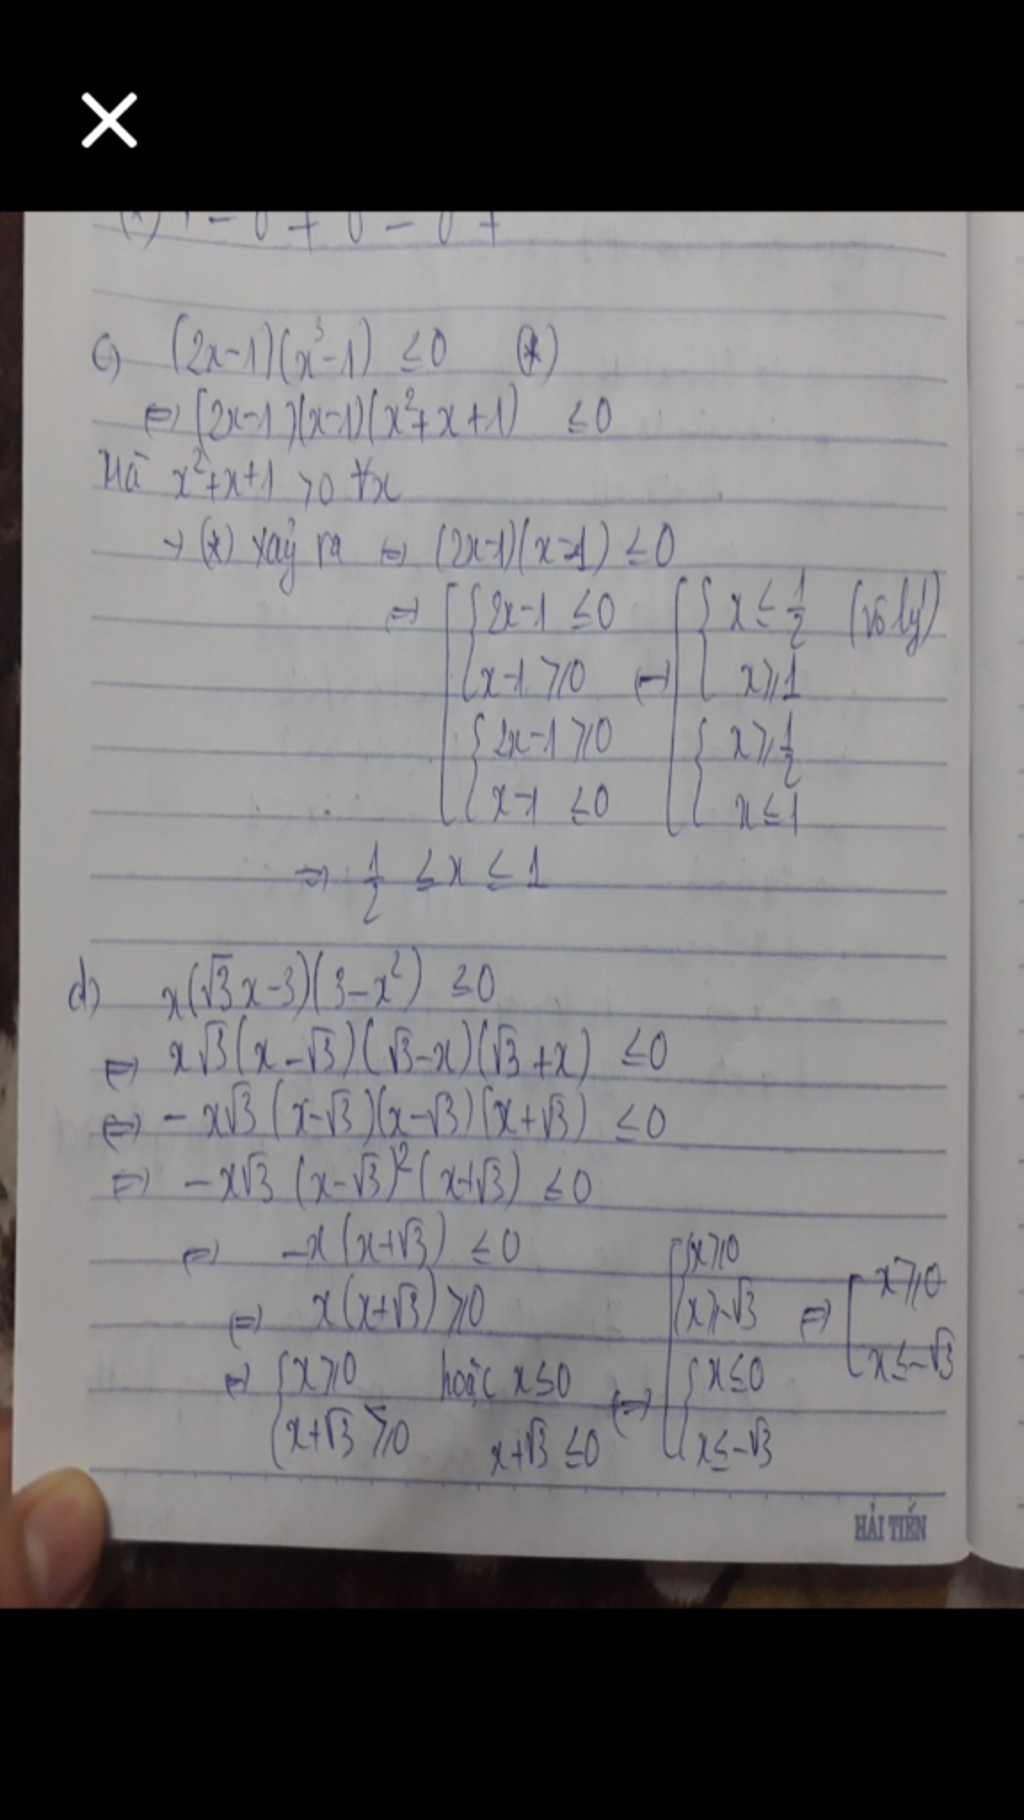 c) (2x-1)(x³-1) ≤0 (*)
⇔ (2x-1)(x-1)(x²+x+1) ≤0
Mà x²+x+1 >0 ∀x
→ (*) xảy ra ⇔ (2x-1)(x-1) ≤0
⇔ [ { 2x-1 ≤0 ⇔ [ { x ≤ 1/2 (vô lý)
x-1 ≥0 x ≥ 1
{ 2x-1 ≥0 { x ≥ 1/2
x-1 ≤0 x ≤ 1
⇒ 1/2 ≤ x ≤ 1
d) x(√3x-3)(3-x²) ≤0
⇔ x√3(x-√3)(√3-x)(√3+x) ≤0
⇔ -x√3(x-√3)(x-√3)(x+√3) ≤0
⇔ -x√3 (x-√3)²(x+√3) ≤0
⇔ -x(x+√3) ≤0
⇔ x(x+√3) ≥0
⇔ { x ≥0 hoặc x ≤0
x+√3 ≥0 x+√3 ≤0
⇔ [ { x ≥0
x ≥ -√3
{ x ≤0
x ≤ -√3
⇔ [ x ≥0
x ≤ -√3
HẢI TIẾN